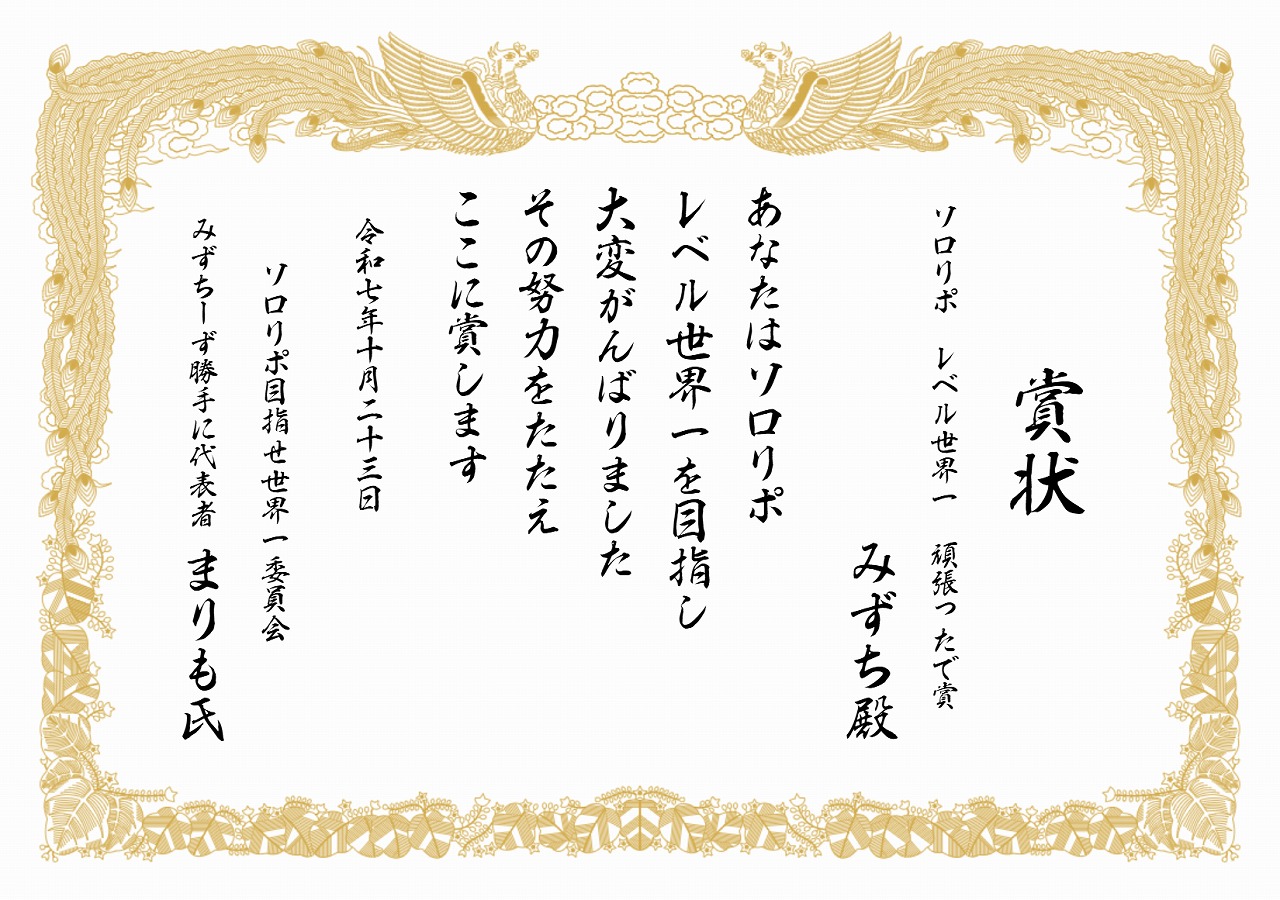 賞状
ソロリポ　レベル世界一　頑張ったで賞
みずち殿
あなたはソロリポ
レベル世界一を目指し
大変がんばりました
その努力をたたえ
ここに賞します
令和七年十月二十三日
ソロリポ目指せ世界一委員会
みずちーず勝手に代表者 まりも氏